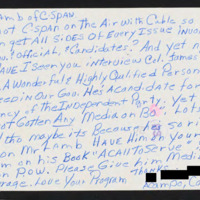 mb of CSPAN
ot C-SPAN on The Air With Cable so
n get All SIDES Of Every Issue INVOL
Official, & Candidates? And yet n
AVE I seen you interview Col. James
A Wonderful & Highly Qulified Person
eep in Our Gov. He's A candidate for
ency of The INdependent Party. Yet
ot Gotten Any Media on Bo Lots
tho maybe its Because he so ri
on Mr Lamb HAVE Him on your
m on his Book "A CAll To Serve"
on Row. Please Give him Medi
erage. Love Your Program Thanks
Acampo, Ca